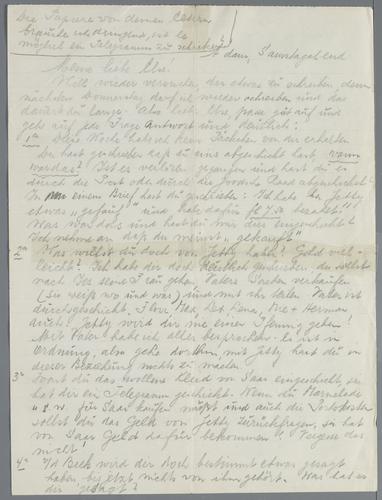 Die Papiere von deinen Eltern
brauche ich dringend, ist es
möglich ein Telegramm zu schicken?
A'dam, Samstagabend
Meine liebe Else!
Will wieder versuchen, dir etwas zu schreiben, denn
nächsten Donnerstag darf ich wieder schreiben und das
dauert zu lange. Also liebe Else, passe gut auf und
gebe auf jede Frage Antwort und deutlich!
1e Diese Woche habe ich kein Päckchen von dir erhalten
Du hast geschrieben daß du uns abgeschickt hast, wann
war das? Ist es verloren gegangen und hast du es
durch die Post oder durch die Joodsche Raad abgeschickt?
In einem Brief hast du geschrieben: Ich habe bei Jetty
etwas "gefäuft" und habe dafür fl 7.50 bezahlt!
Was war das und hast du mir dies eingeschickt?
Ich nehme an daß du meinst "gekauft".
2e Was willst du doch von Jetty haben? Geld viel-
leicht? Ich habe dir doch deutlich geschrieben, du sollst
nach Ies seine Frau gehen, Vaters Sachen verkaufen
(Sie weiß wo und was) und mit ihr teilen. Vater ist
durchgeschickt. Flora, Max, Lena, Bre + Herman
durch! Jetty wird dir nie einen Pfennig geben!
Mit Vater habe ich alles besprochen. Es ist in
Ordnung, also gehe dorthin, mit Jetty hast du in
dieser Beziehung nichts zu machen.
3e Hast du das wollene Kleid von Saar eingeschickt, sie
hat dir ein Telegramm geschickt. Wenn du Marmelade
u.s.w. für Saar kaufen mußt und auch die Portokosten
sollst du das Geld von Jetty zurückfragen, sie hat
von Saar Geld dafür bekommen! Vergess das
nicht!
4e Id Beek wird dir doch bestimmt etwas gesagt
haben, bis jetzt nichts von ihm gehört. Was hat er
dir gesagt?